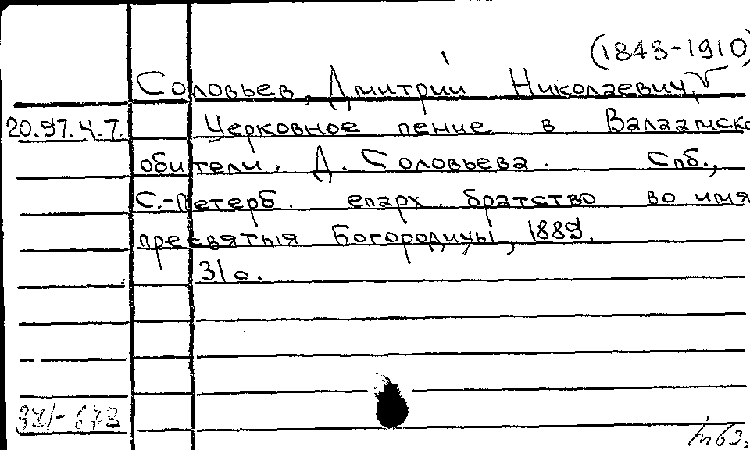 (1843-1910)
Соловьев, Дмитрий Николаевич.
20.97.4.7. Церковное пение в Валаамско
обители. Д. Соловьева. Спб.,
С.-Петерб. епарх братство во имя
пресвятыя Богородицы, 1889.
31 с.